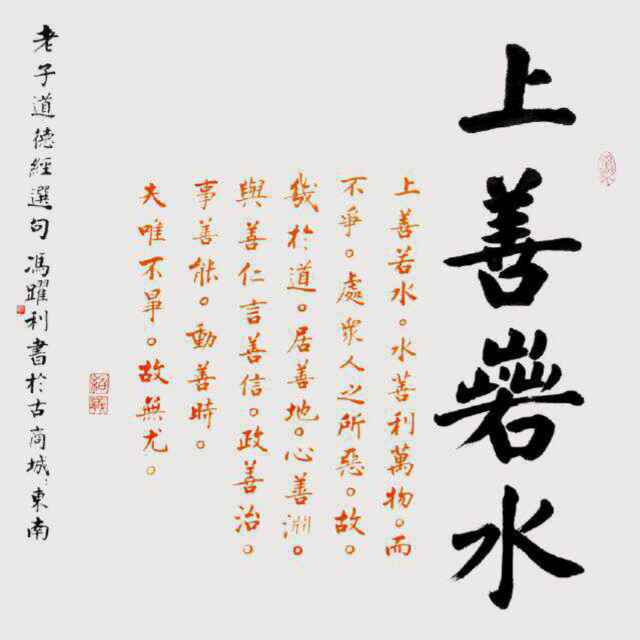 上善若水
上善若水。水善利萬物。而
不爭。處眾人之所惡。故。
幾於道。居善地。心善淵。
與善仁言善信。政善治。
事善能。動善時。
夫唯不爭。故無尤。
老子道德經選句馮躍利書於古商城東南